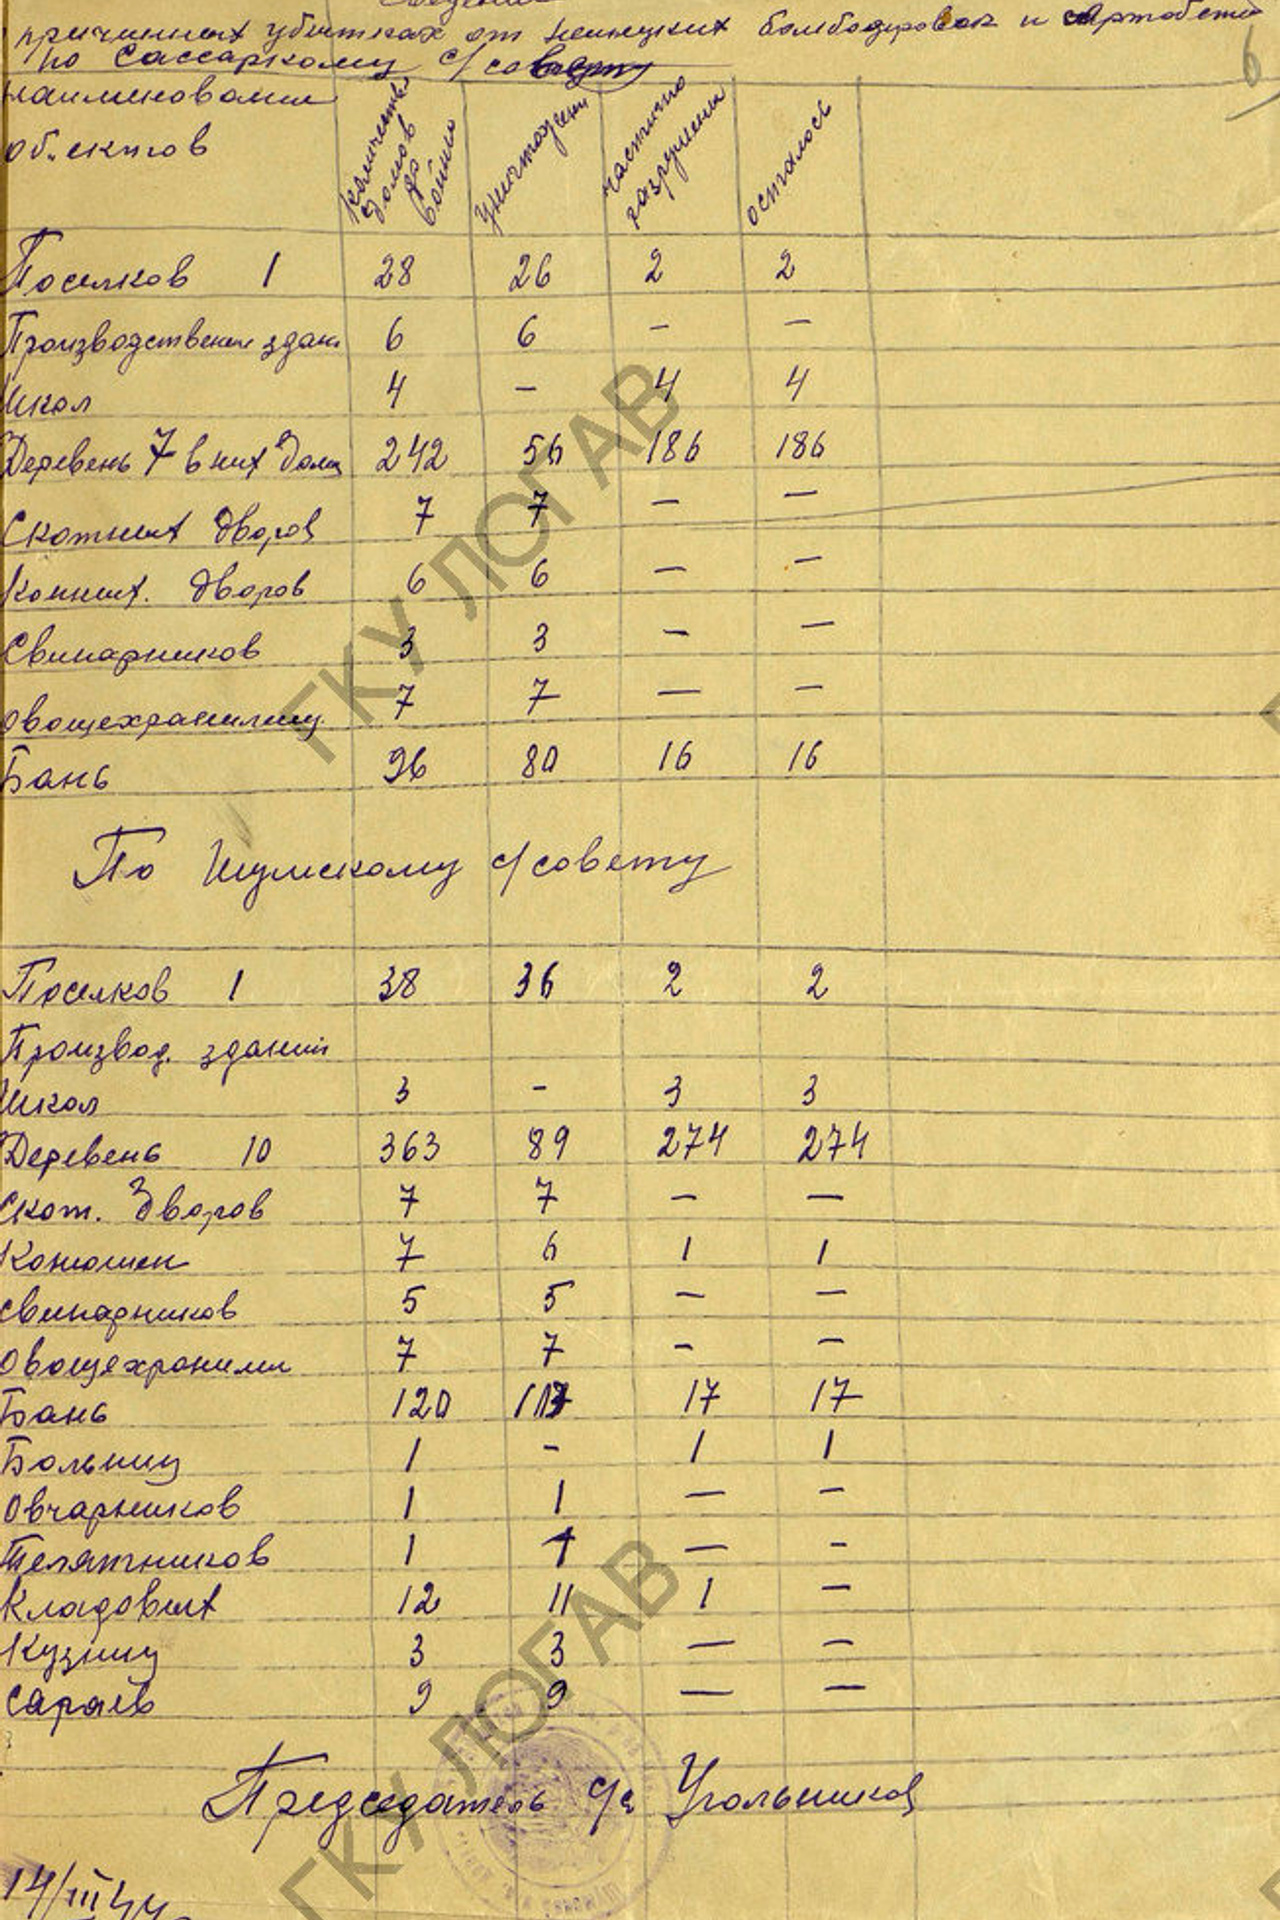 Сведения
причиненных убытках от немецких бомбодировок и артобстр
по Сассарскому с/совету
6
наименование объектов количество домов до войны уничтожены частично разрушены осталось
Поселков 1 28 26 2 2
Производственые здан 6 6 — —
Школ 4 — 4 4
Деревень 7 в них дома 242 56 186 186
Скотных дворов 7 7 — —
Конных. дворов 6 6 — —
Свинарников 3 3 — —
Овощехранилищ 7 7 — —
Бань 96 80 16 16
По Шумскому с/совету
Поселков 1 38 36 2 2
Производ. зданий
Школ 3 - 3 3
Деревень 10 363 89 274 274
Скот. дворов 7 7 — —
Конюшен 7 6 1 1
Свинарников 5 5 — —
Овощехранили 7 7 - —
Бань 120 17 17
Больниц 1 - 1 1
Овчарников 1 1 — —
Телятников 1 1 — -
Кладовых 12 11 1 —
Кузниц 3 3 — —
Сараев 9 9 — —
Председатель с/с Угольников
14/III 44
ГКУ ЛОГАВ
ГКУ ЛОГАВ